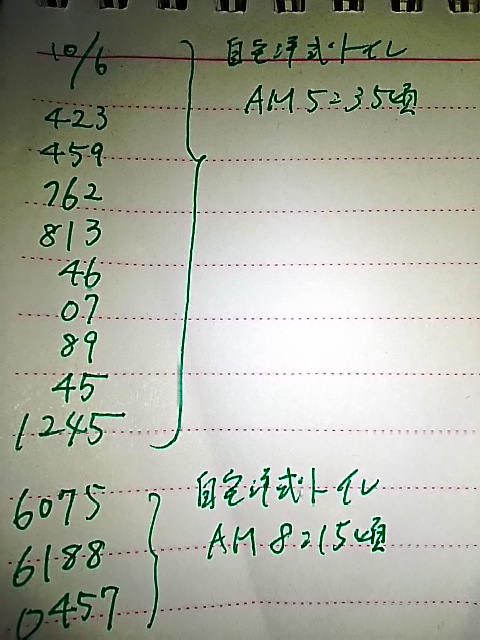 10/6
自宅洋式トイレ
AM5:35頃
423
459
762
813
46
07
89
45
1245
自宅洋式トイレ
AM8:15頃
6075
6188
0457